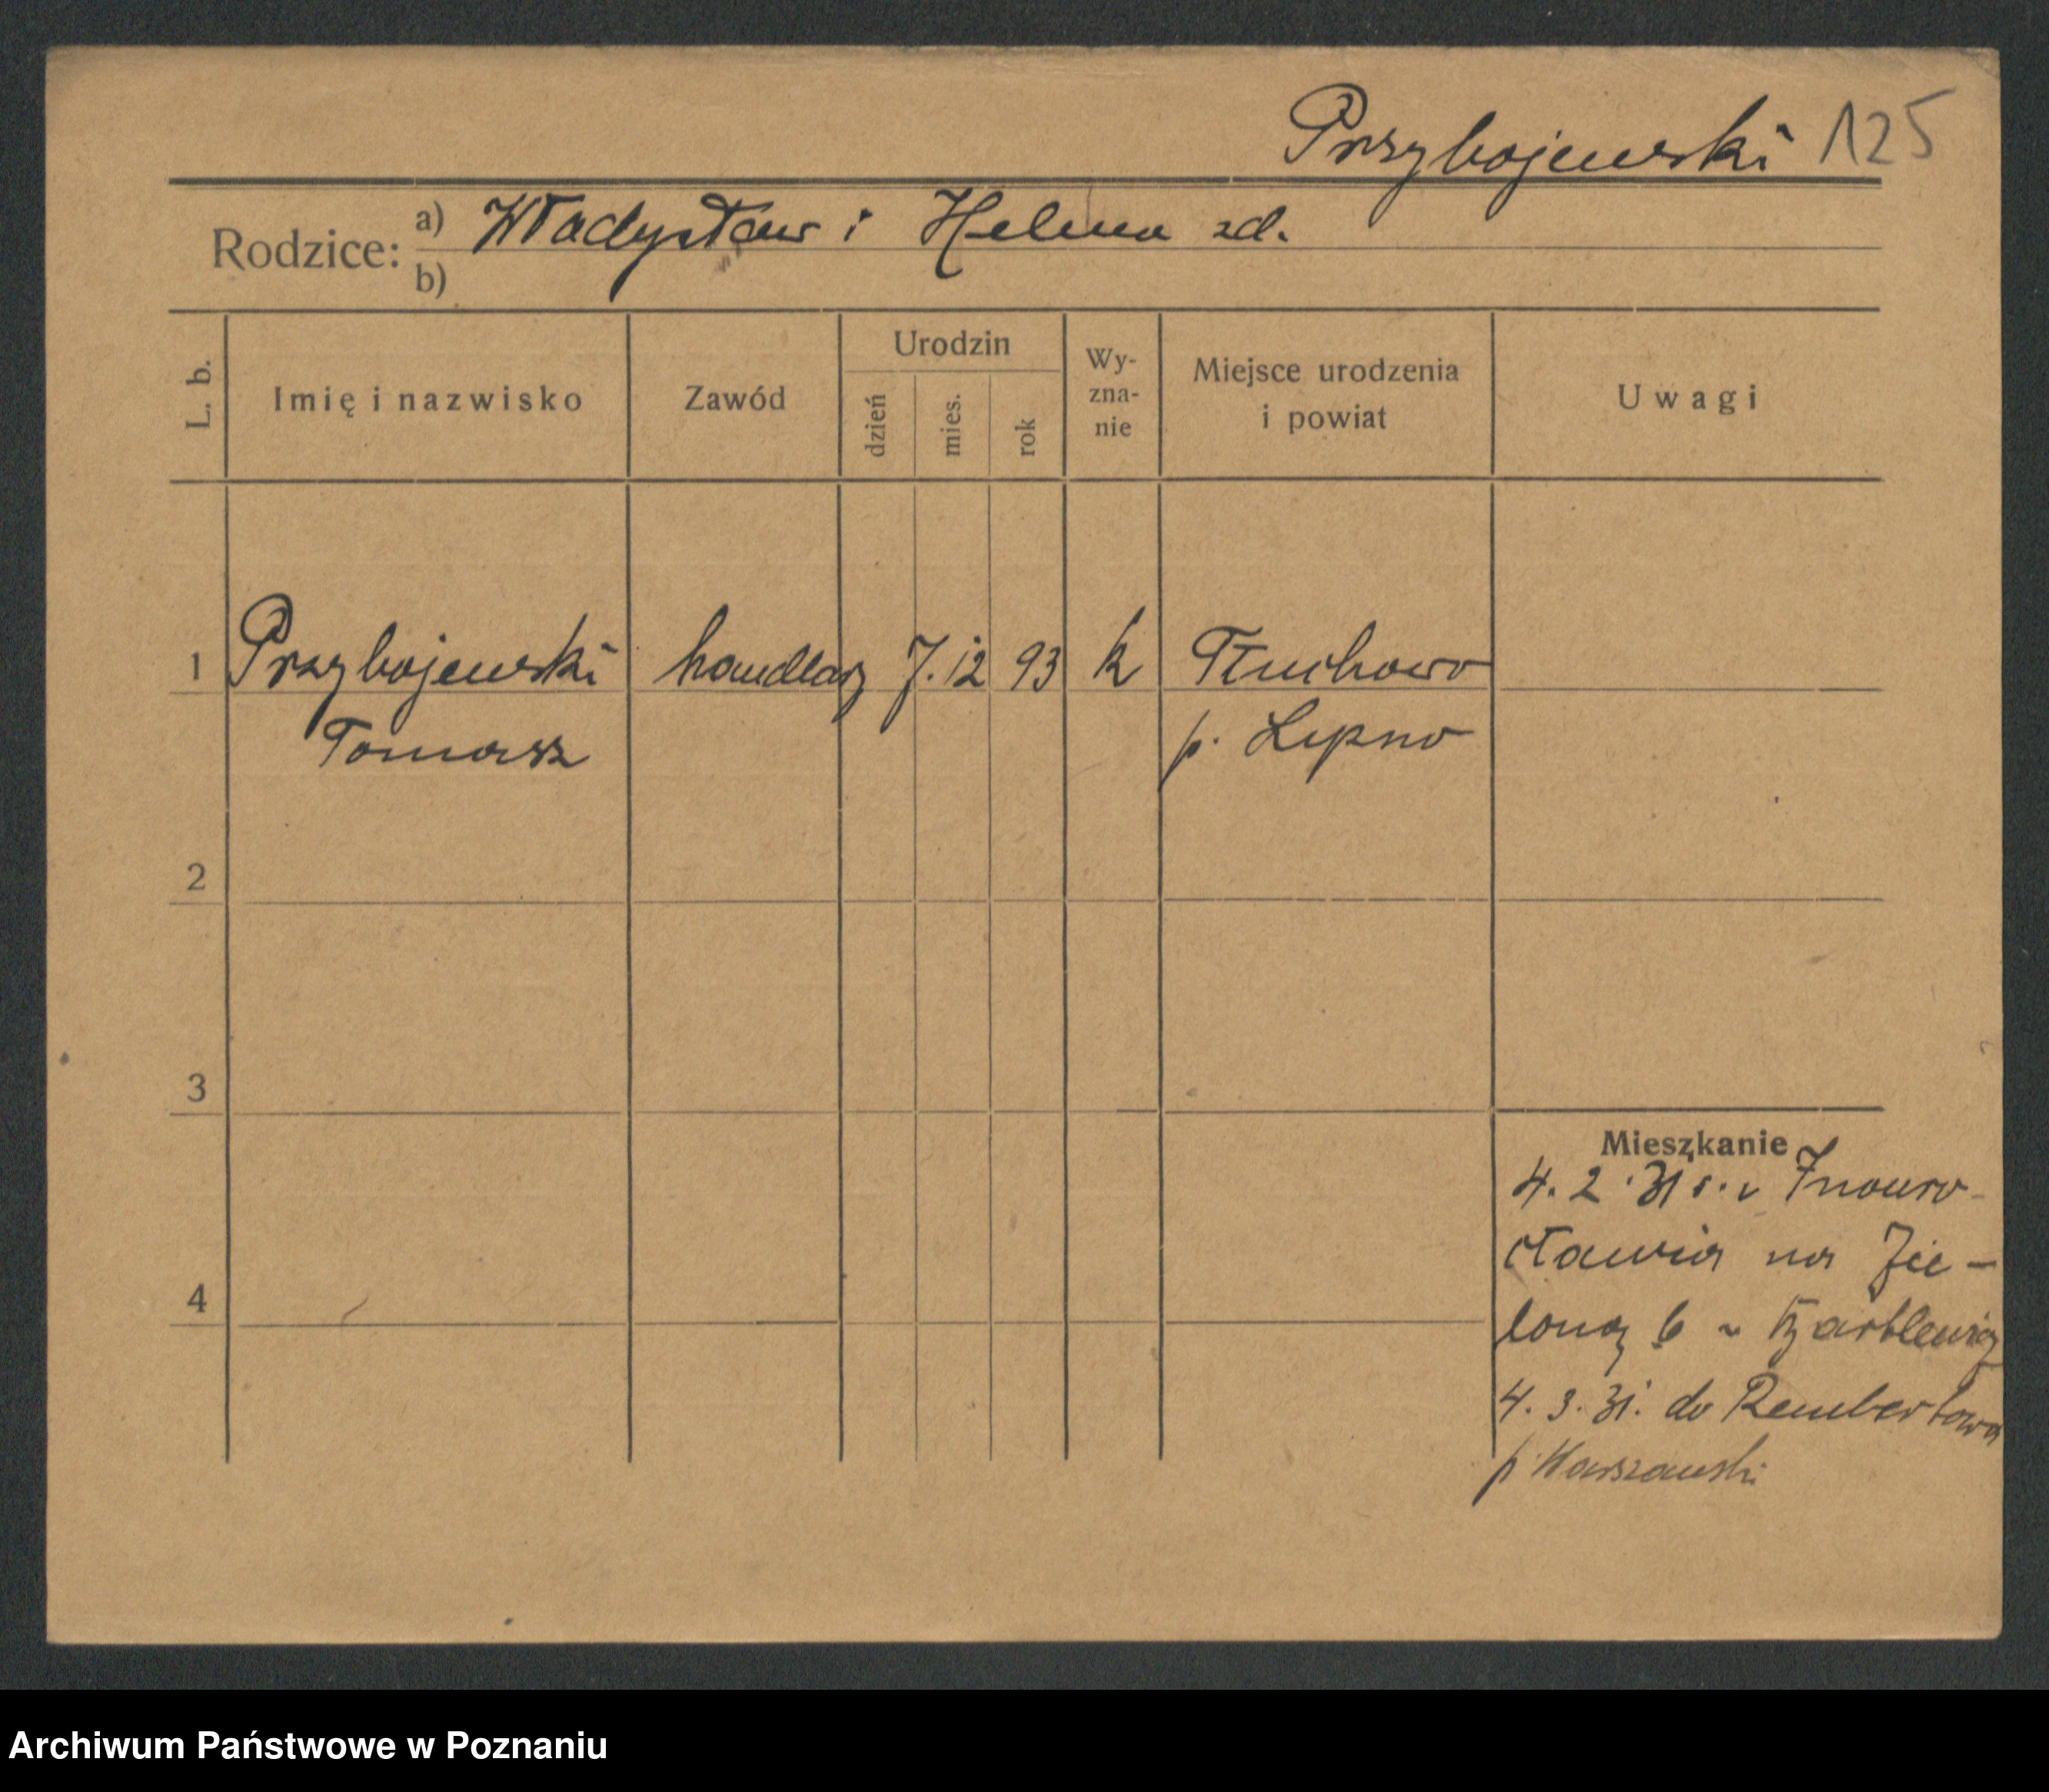 Przybojewski 125
Rodzice: a) Władysław i Helena zd.
b)
L. b. Imię i nazwisko Zawód Urodzin dzień mies. rok Wy-zna-nie Miejsce urodzenia i powiat Uwagi
1 Przybojewski handlarz 7. 12 93 k Tłuchowo
Tomasz p. Lipno
2
3
Mieszkanie
4. 2. 31 r. z Inowro-
cławia na Zie-
4
loną 6
4. 3. 31. do Rembertowa
p. Warszawski
Archiwum Państwowe w Poznaniu